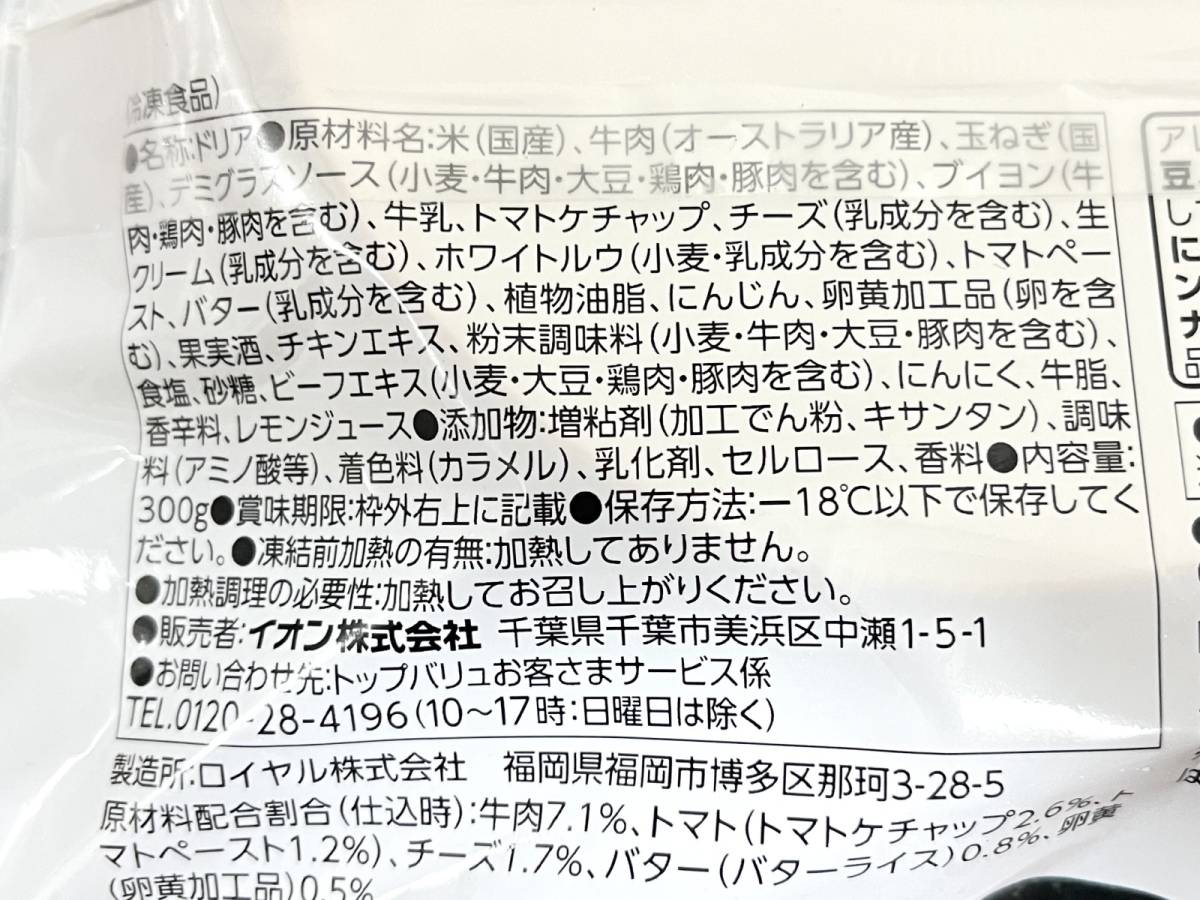 (冷凍食品)
●名称:ドリア●原材料名:米(国産)、牛肉(オーストラリア産)、玉ねぎ(国
産)、デミグラスソース(小麦・牛肉・大豆・鶏肉・豚肉を含む)、ブイヨン(牛
肉・鶏肉・豚肉を含む)、牛乳、トマトケチャップ、チーズ(乳成分を含む)、生
クリーム(乳成分を含む)、ホワイトルウ(小麦・乳成分を含む)、トマトペー
スト、バター(乳成分を含む)、植物油脂、にんじん、卵黄加工品(卵を含
む)、果実酒、チキンエキス、粉末調味料(小麦・牛肉・大豆・豚肉を含む)、
食塩、砂糖、ビーフエキス(小麦・大豆・鶏肉・豚肉を含む)、にんにく、牛脂、
香辛料、レモンジュース●添加物:増粘剤(加工でん粉、キサンタン)、調味
料(アミノ酸等)、着色料(カラメル)、乳化剤、セルロース、香料●内容量:
300g●賞味期限:枠外右上に記載●保存方法:−18℃以下で保存してく
ださい。●凍結前加熱の有無:加熱してありません。
●加熱調理の必要性:加熱してお召し上がりください。
●販売者:イオン株式会社 千葉県千葉市美浜区中瀬1-5-1
●お問い合わせ先:トップバリュお客さまサービス係
TEL.0120-28-4196(10〜17時:日曜日は除く)
製造所:ロイヤル株式会社 福岡県福岡市博多区那珂3-28-5
原材料配合割合(仕込時):牛肉7.1%、トマト(トマトケチャップ2.6%、ト
マトペースト1.2%)、チーズ1.7%、バター(バターライス)0.8%、卵黄
(卵黄加工品)0.5%
アレ
豆
し
に
ン
カ
品